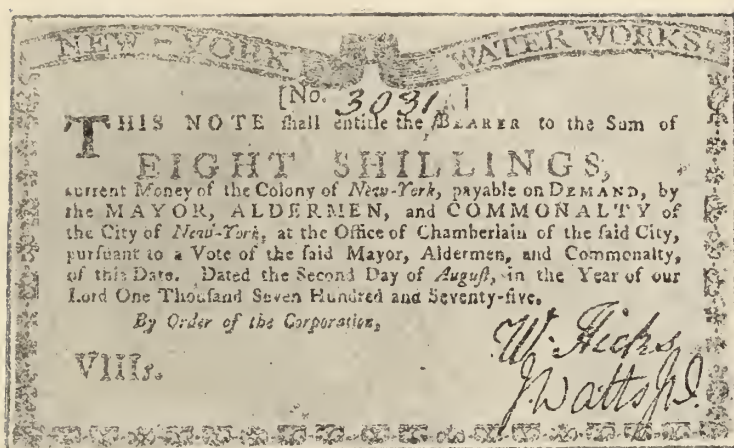 NEW-YORK WATER WORKS
[No. 3031 A]
THIS NOTE ſhall entitle the BEARER to the Sum of
EIGHT SHILLINGS,
current Money of the Colony of New-York, payable on DEMAND, by
the MAYOR, ALDERMEN, and COMMONALTY of
the City of New-York, at the Office of Chamberlain of the ſaid City,
purſuant to a Vote of the ſaid Mayor, Aldermen, and Commonalty,
of this Date. Dated the Second Day of Auguſt, in the Year of our
Lord One Thouſand Seven Hundred and Seventy-five.
By Order of the Corporation,
W. Hicks
VIIIs.
J Watts Jr.